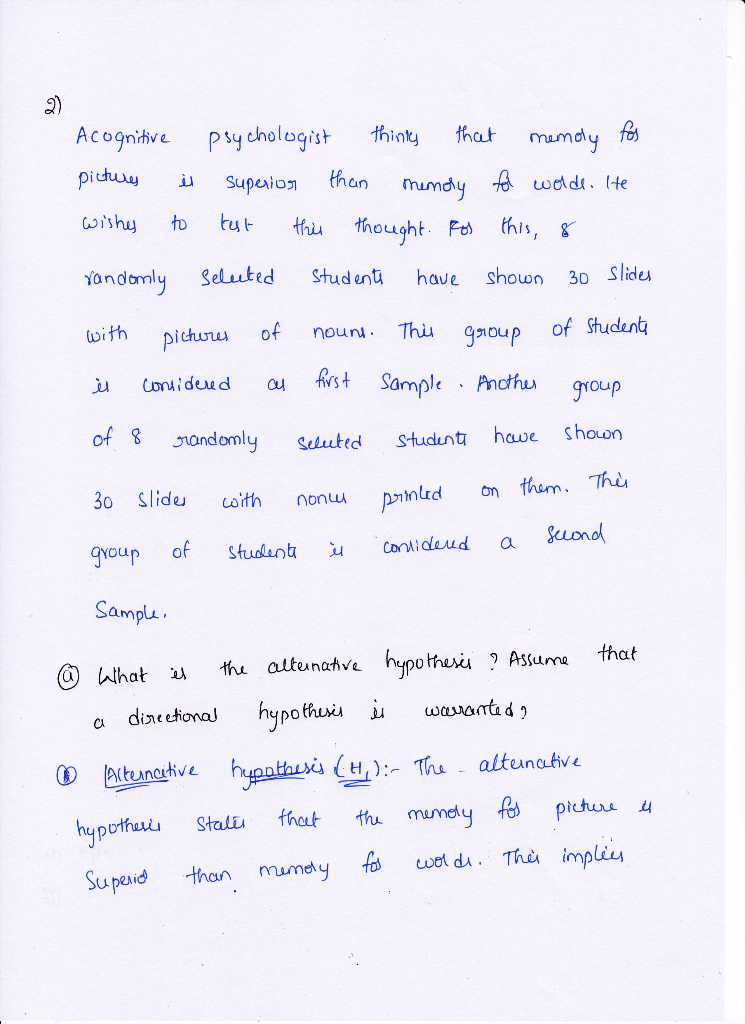 2)
A cognitive psychologist thinks that memory for
pictures is superior than memory for words. He
wishes to test this thought. For this, 8
randomly selected students have shown 30 slides
with pictures of nouns. This group of students
is considered as first sample. Another group
of 8 randomly selected students have shown
30 slides with nonus printed on them. This
group of students is considered a second
sample.
(a) What is the alternative hypothesis? Assume that
a directional hypothesis is warranted?
Alternative hypothesis (H1):- The alternative
hypothesis states that the memory for picture is
superior than memory for words. This implies